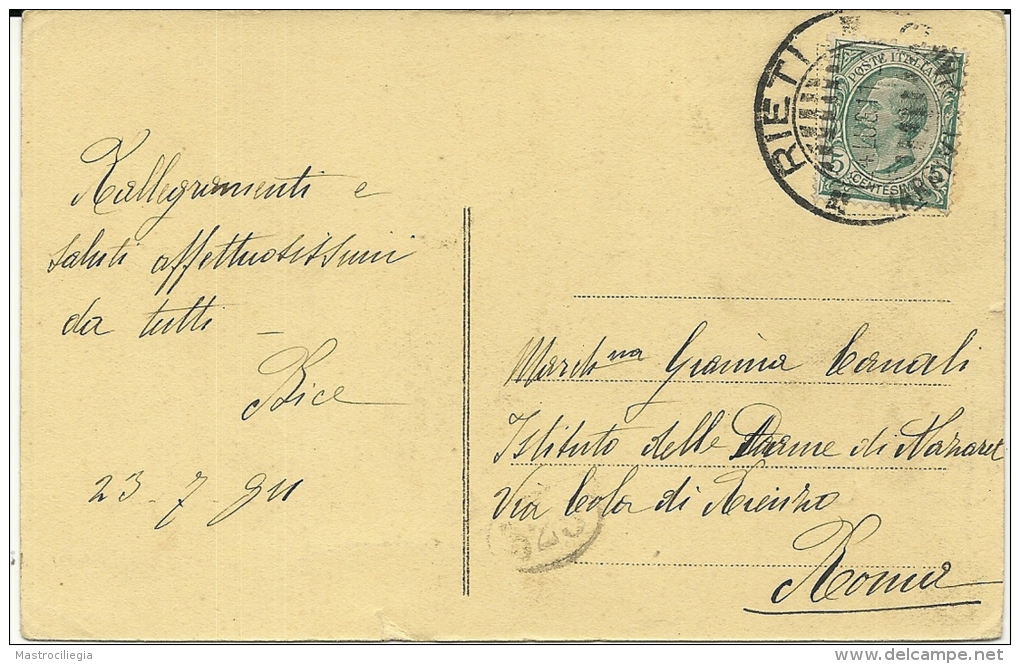 Rallegramenti e
saluti affettuosissimi
da tutti –
Bice
23-7-911
RIETI
POSTE ITALIANE
CENTESIMI
5
March.na Gianna Canali
Istituto delle Dame di Nazaret
Via Cola di Rienzo
Roma
Mastrociliegia
delcampe.net